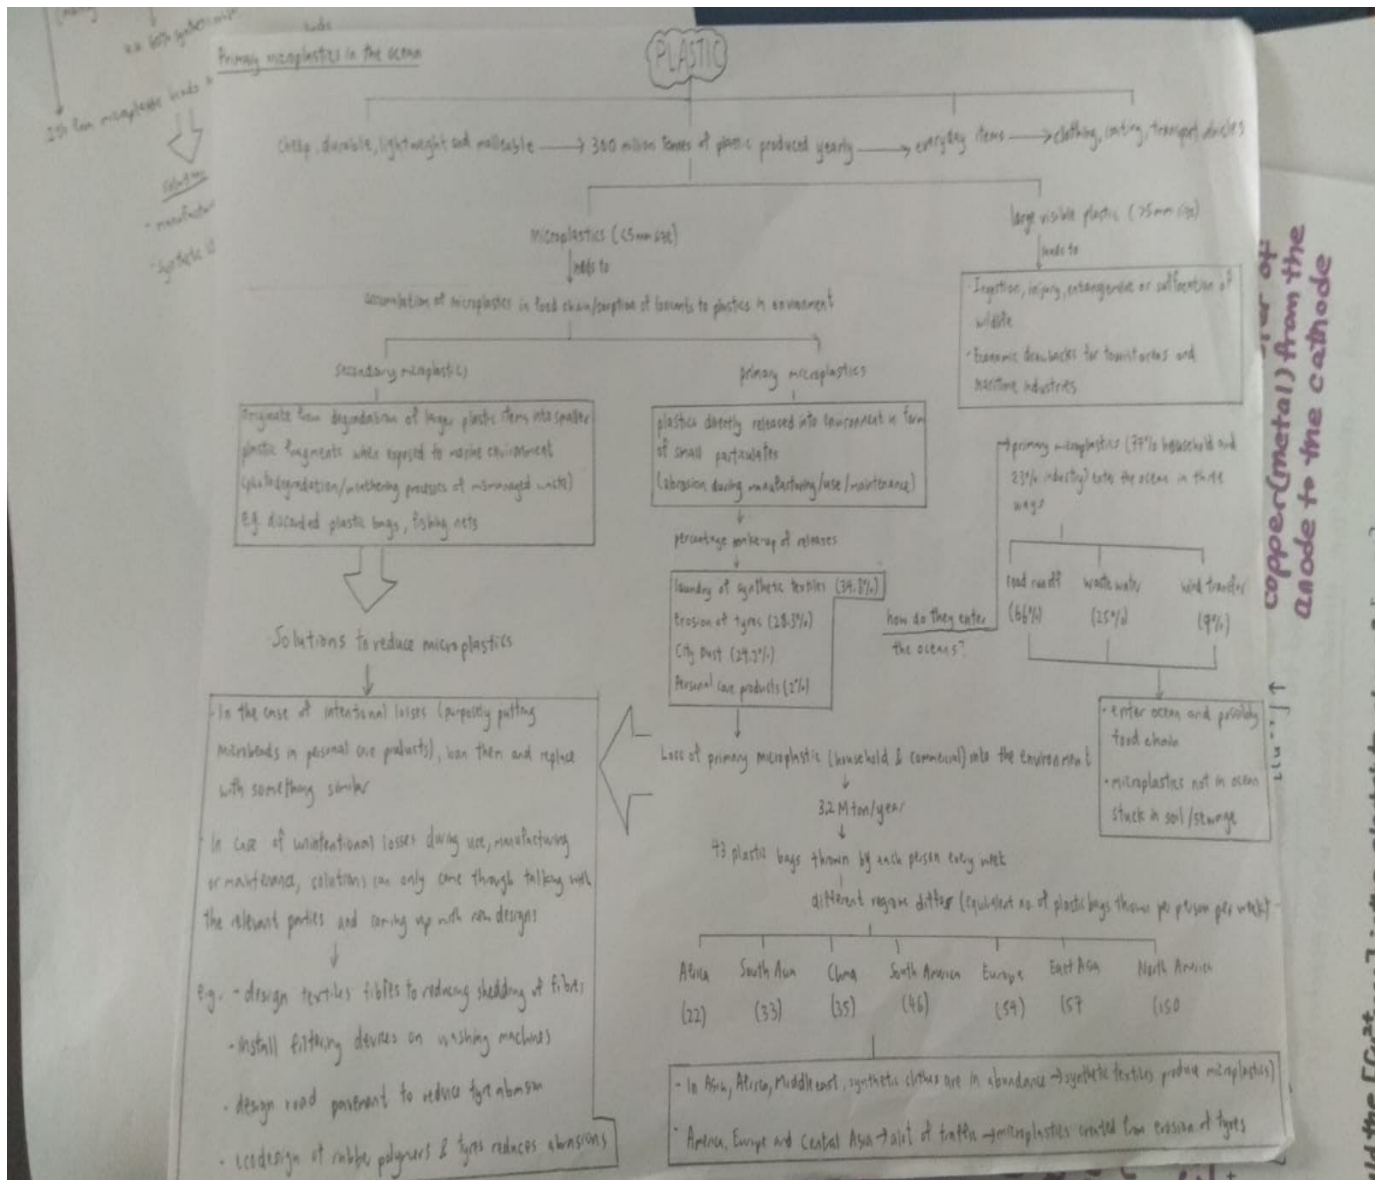 Primary microplastics in the ocean
PLASTIC
cheap, durable, lightweight and malleable → 300 million tonnes of plastic produced yearly → everyday items → clothing, coating, transport vehicles
microplastics (<5mm size)
large visible plastic (>5mm size)
leads to
leads to
accumulation of microplastics in food chain/sorption of toxicants to plastics in environment
- Ingestion, injury, entanglement or suffocation of
wildlife
- Economic drawbacks for tourist areas and
maritime industries
secondary microplastics
primary microplastics
originate from degradation of larger plastic items into smaller
plastic fragments when exposed to marine environment
(photodegradation/weathering processes of mismanaged waste)
e.g. discarded plastic bags, fishing nets
plastics directly released into environment in form
of small particulates
(abrasion during manufacturing/use/maintenance)
percentage make-up of releases
laundry of synthetic textiles (34.8%)
Erosion of tyres (28.3%)
City Dust (24.2%)
Personal care products (2%)
how do they enter
the oceans?
→ primary microplastics (77% household and
23% industry) enter the ocean in three
ways
road runoff
(66%)
waste water
(25%)
wind transfer
(9%)
- enter ocean and possibly
food chain
- microplastics not in ocean
stuck in soil/sewage
Solutions to reduce microplastics
- In the case of intentional losses (purposely putting
microbeads in personal care products), ban them and replace
with something similar
- In case of unintentional losses during use, manufacturing
or maintenance, solutions can only come though talking with
the relevant parties and coming up with new designs
e.g. - design textiles fibres to reducing shedding of fibres
- install filtering devices on washing machines
- design road pavement to reduce tyre abrasion
- ecodesign of rubber polymers & tyres reduces abrasions
Loss of primary microplastic (household & commercial) into the environment
3.2 Mton/year
43 plastic bags thrown by each person every week
different regions differ (equivalent no. of plastic bags thrown per person per week)
Africa
(22)
South Asia
(33)
China
(35)
South America
(46)
Europe
(54)
East Asia
(57
North America
(150
- In Asia, Africa, Middle east, synthetic clothes are in abundance → synthetic textiles produce microplastics)
- America, Europe and Central Asia → alot of traffic → microplastics created from erosion of tyres
copper(metal) from the
anode to the cathode